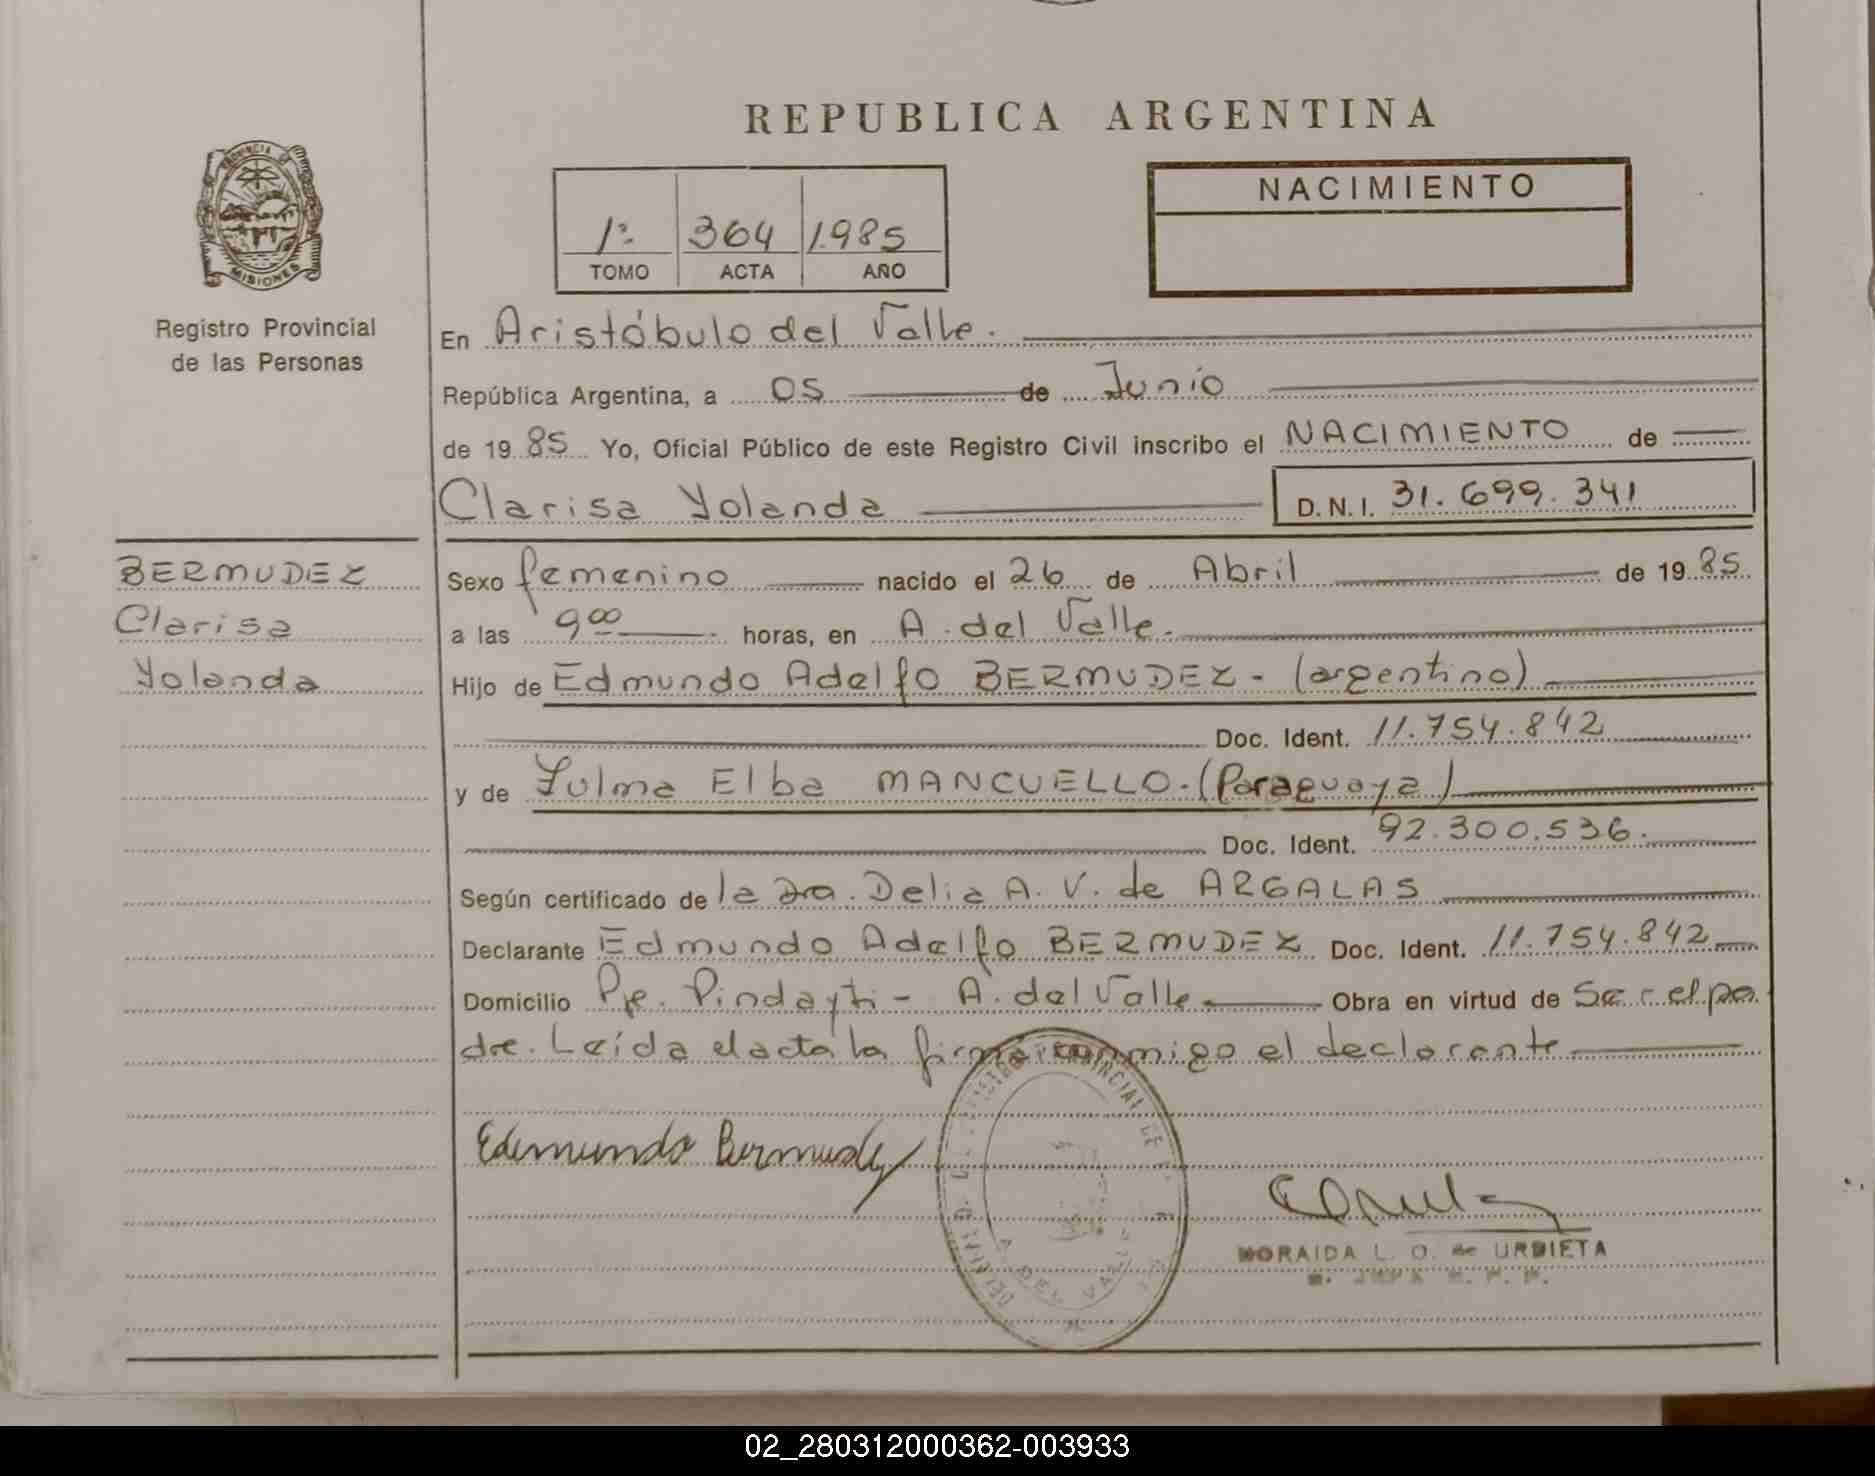 REPUBLICA ARGENTINA
PROVINCIA DE
MISIONES
Registro Provincial
de las Personas
1º 364 1985
TOMO ACTA AÑO
NACIMIENTO
En Aristóbulo del Valle.
República Argentina, a 05 de Junio
de 1985 Yo, Oficial Público de este Registro Civil inscribo el NACIMIENTO de
Clarisa Yolanda D.N.I. 31.699.341
BERMUDEZ
Clarisa
Yolanda
Sexo femenino nacido el 26 de Abril de 1985
a las 9 00 horas, en A. del Valle.
Hijo de Edmundo Adelfo BERMUDEZ - (argentino)
Doc. Ident. 11.754.842
y de Zulma Elba MANCUELLO. (Paraguaya)
Doc. Ident. 92.300.536.
Según certificado de la Dra. Delia A. V. de ARGALAS
Declarante Edmundo Adelfo BERMUDEZ Doc. Ident. 11.754.842
Domicilio Pje. Pindayti - A. del Valle Obra en virtud de Ser el pa
dre. Leída el acta la firma conmigo el declarante
Edmundo Bermudez
PROVINCIAL DE
A. DEL VALLE
L. O. de URDIETA
02_280312000362-003933